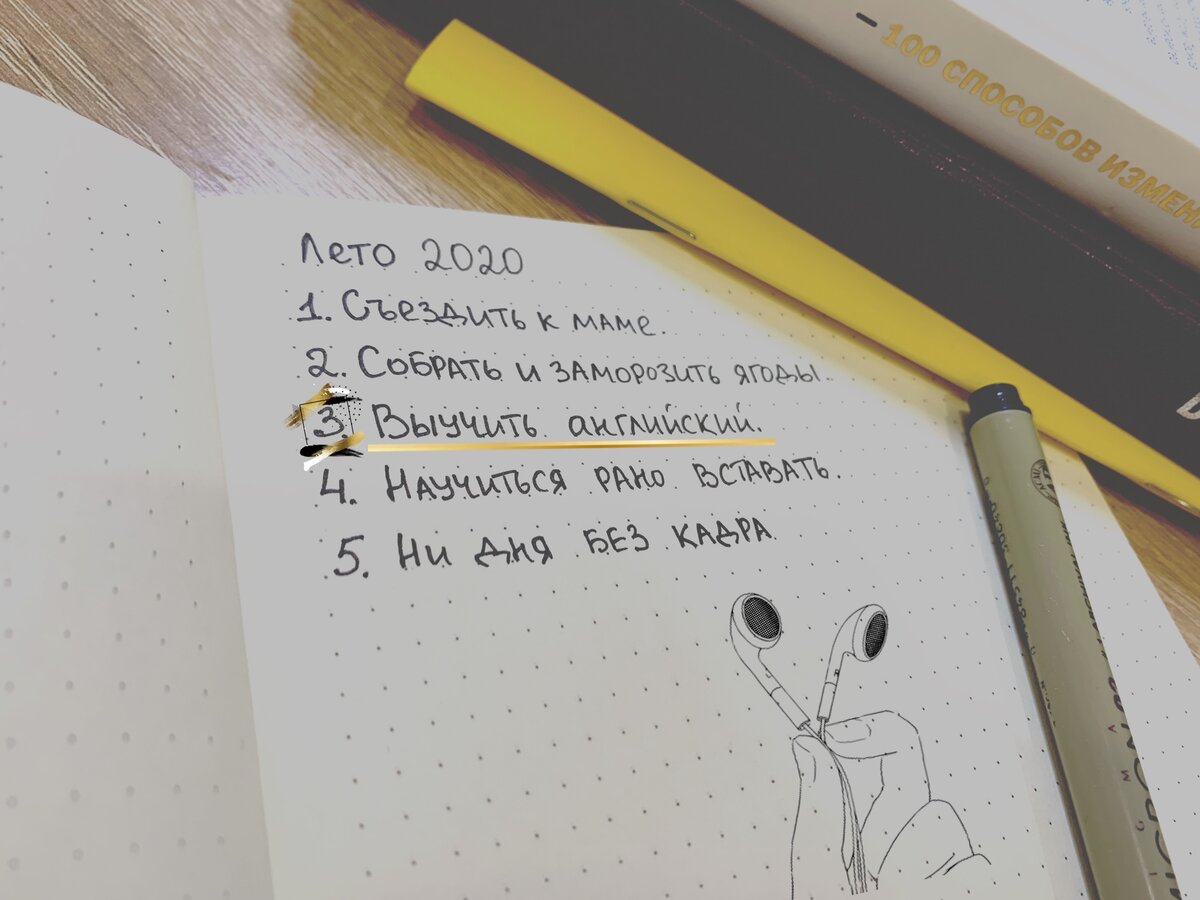 – 100 СПОСОБОВ
Лето 2020
1. Съездить к маме.
2. Собрать и заморозить ягоды.
3 Выучить английский.
4. Научиться рано вставать.
5. Ни дня без кадра